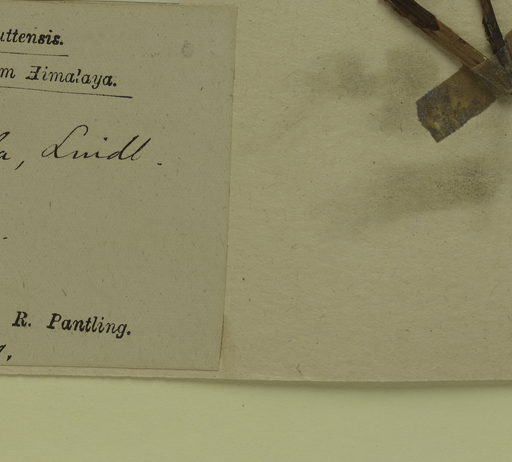 uttensis.
m Himalaya.
a, Lindl.
R. Pantling.